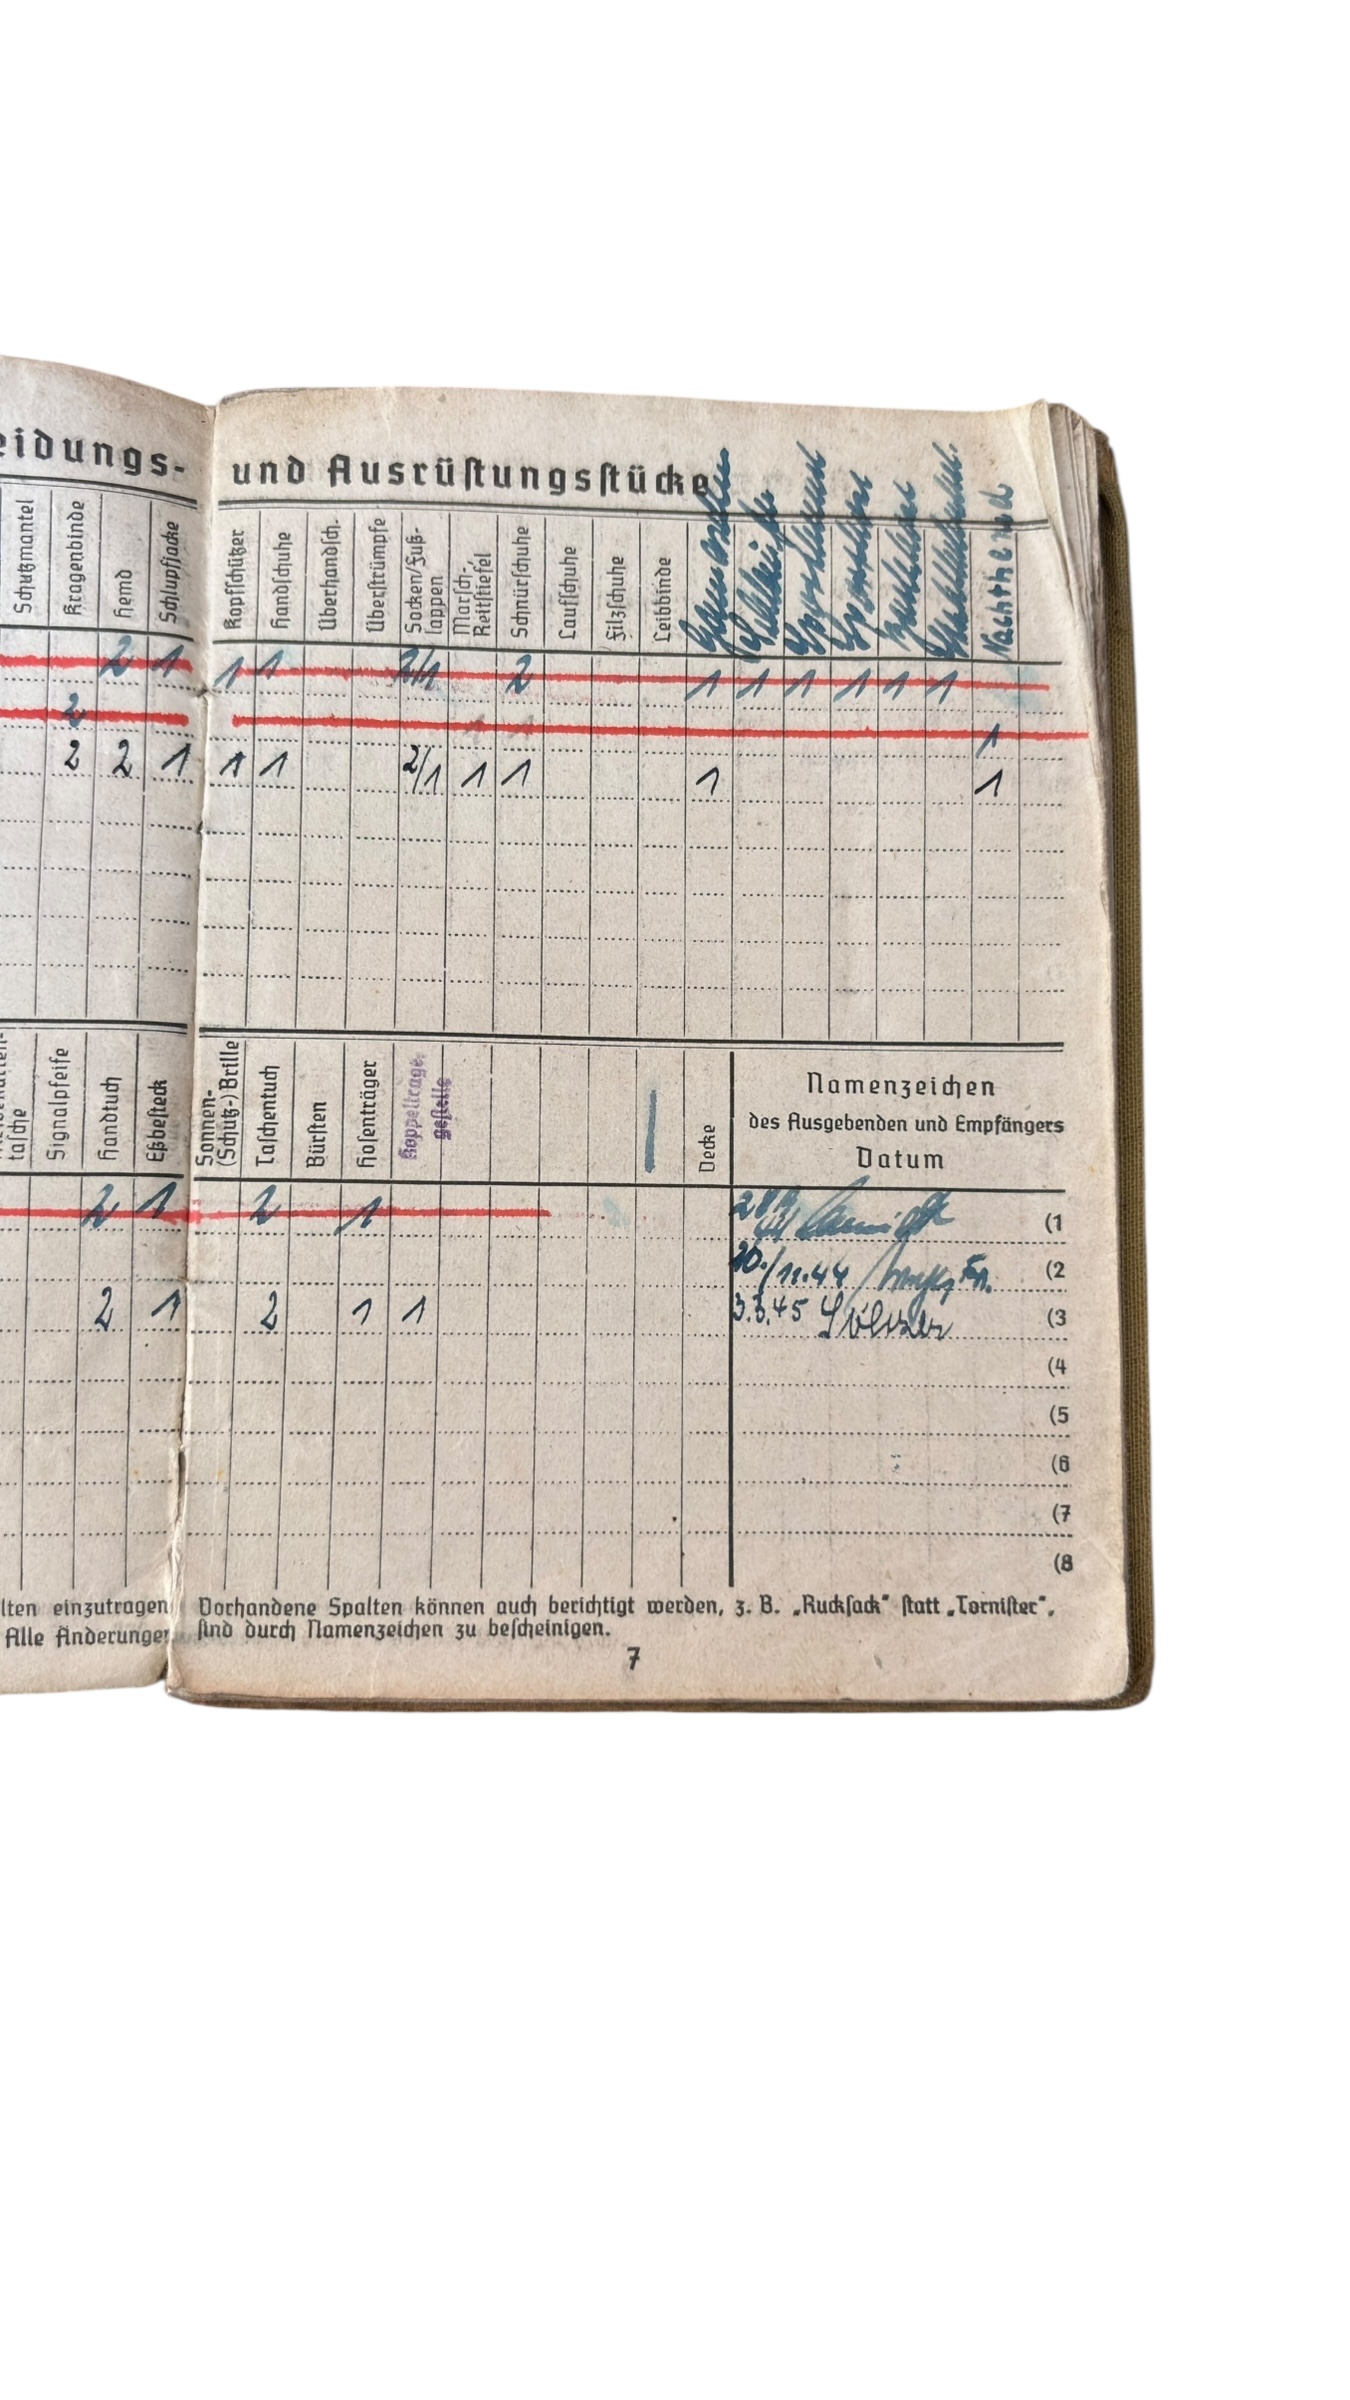 eidungs-
und Ausrüstungsstücke
Schutzmantel Kragenbinde Hemd Schlupfjacke
Kopfschützer Handschuhe Überhandsch. Überstrümpfe Socken/Fuß-lappen Marsch-Reitstiefel Schnürschuhe Laufschuhe Filzschuhe Leibbinde Sporthemd Sporthose Nachthemd
2 1 1 1 2/1 2 1 1 1 1 1 1
2 1 1 1
2 2 1 1 1 2/1 1 1 1 1
tasche Signalpfeife Handtuch Eßbesteck
Sonnen-(Schutz-)Brille Taschentuch Bürsten Hosenträger Koppeltrage-gestelle Decke
Namenzeichen
des Ausgebenden und Empfängers
Datum
2 1 2 1 (1
20./11.44 (2
2 1 2 1 1 3.3.45 (3
(4
(5
(6
(7
(8
lten einzutragen
Alle Änderungen
Vorhandene Spalten können auch berichtigt werden, z. B. „Rucksack“ statt „Tornister“,
sind durch Namenzeichen zu bescheinigen.
7